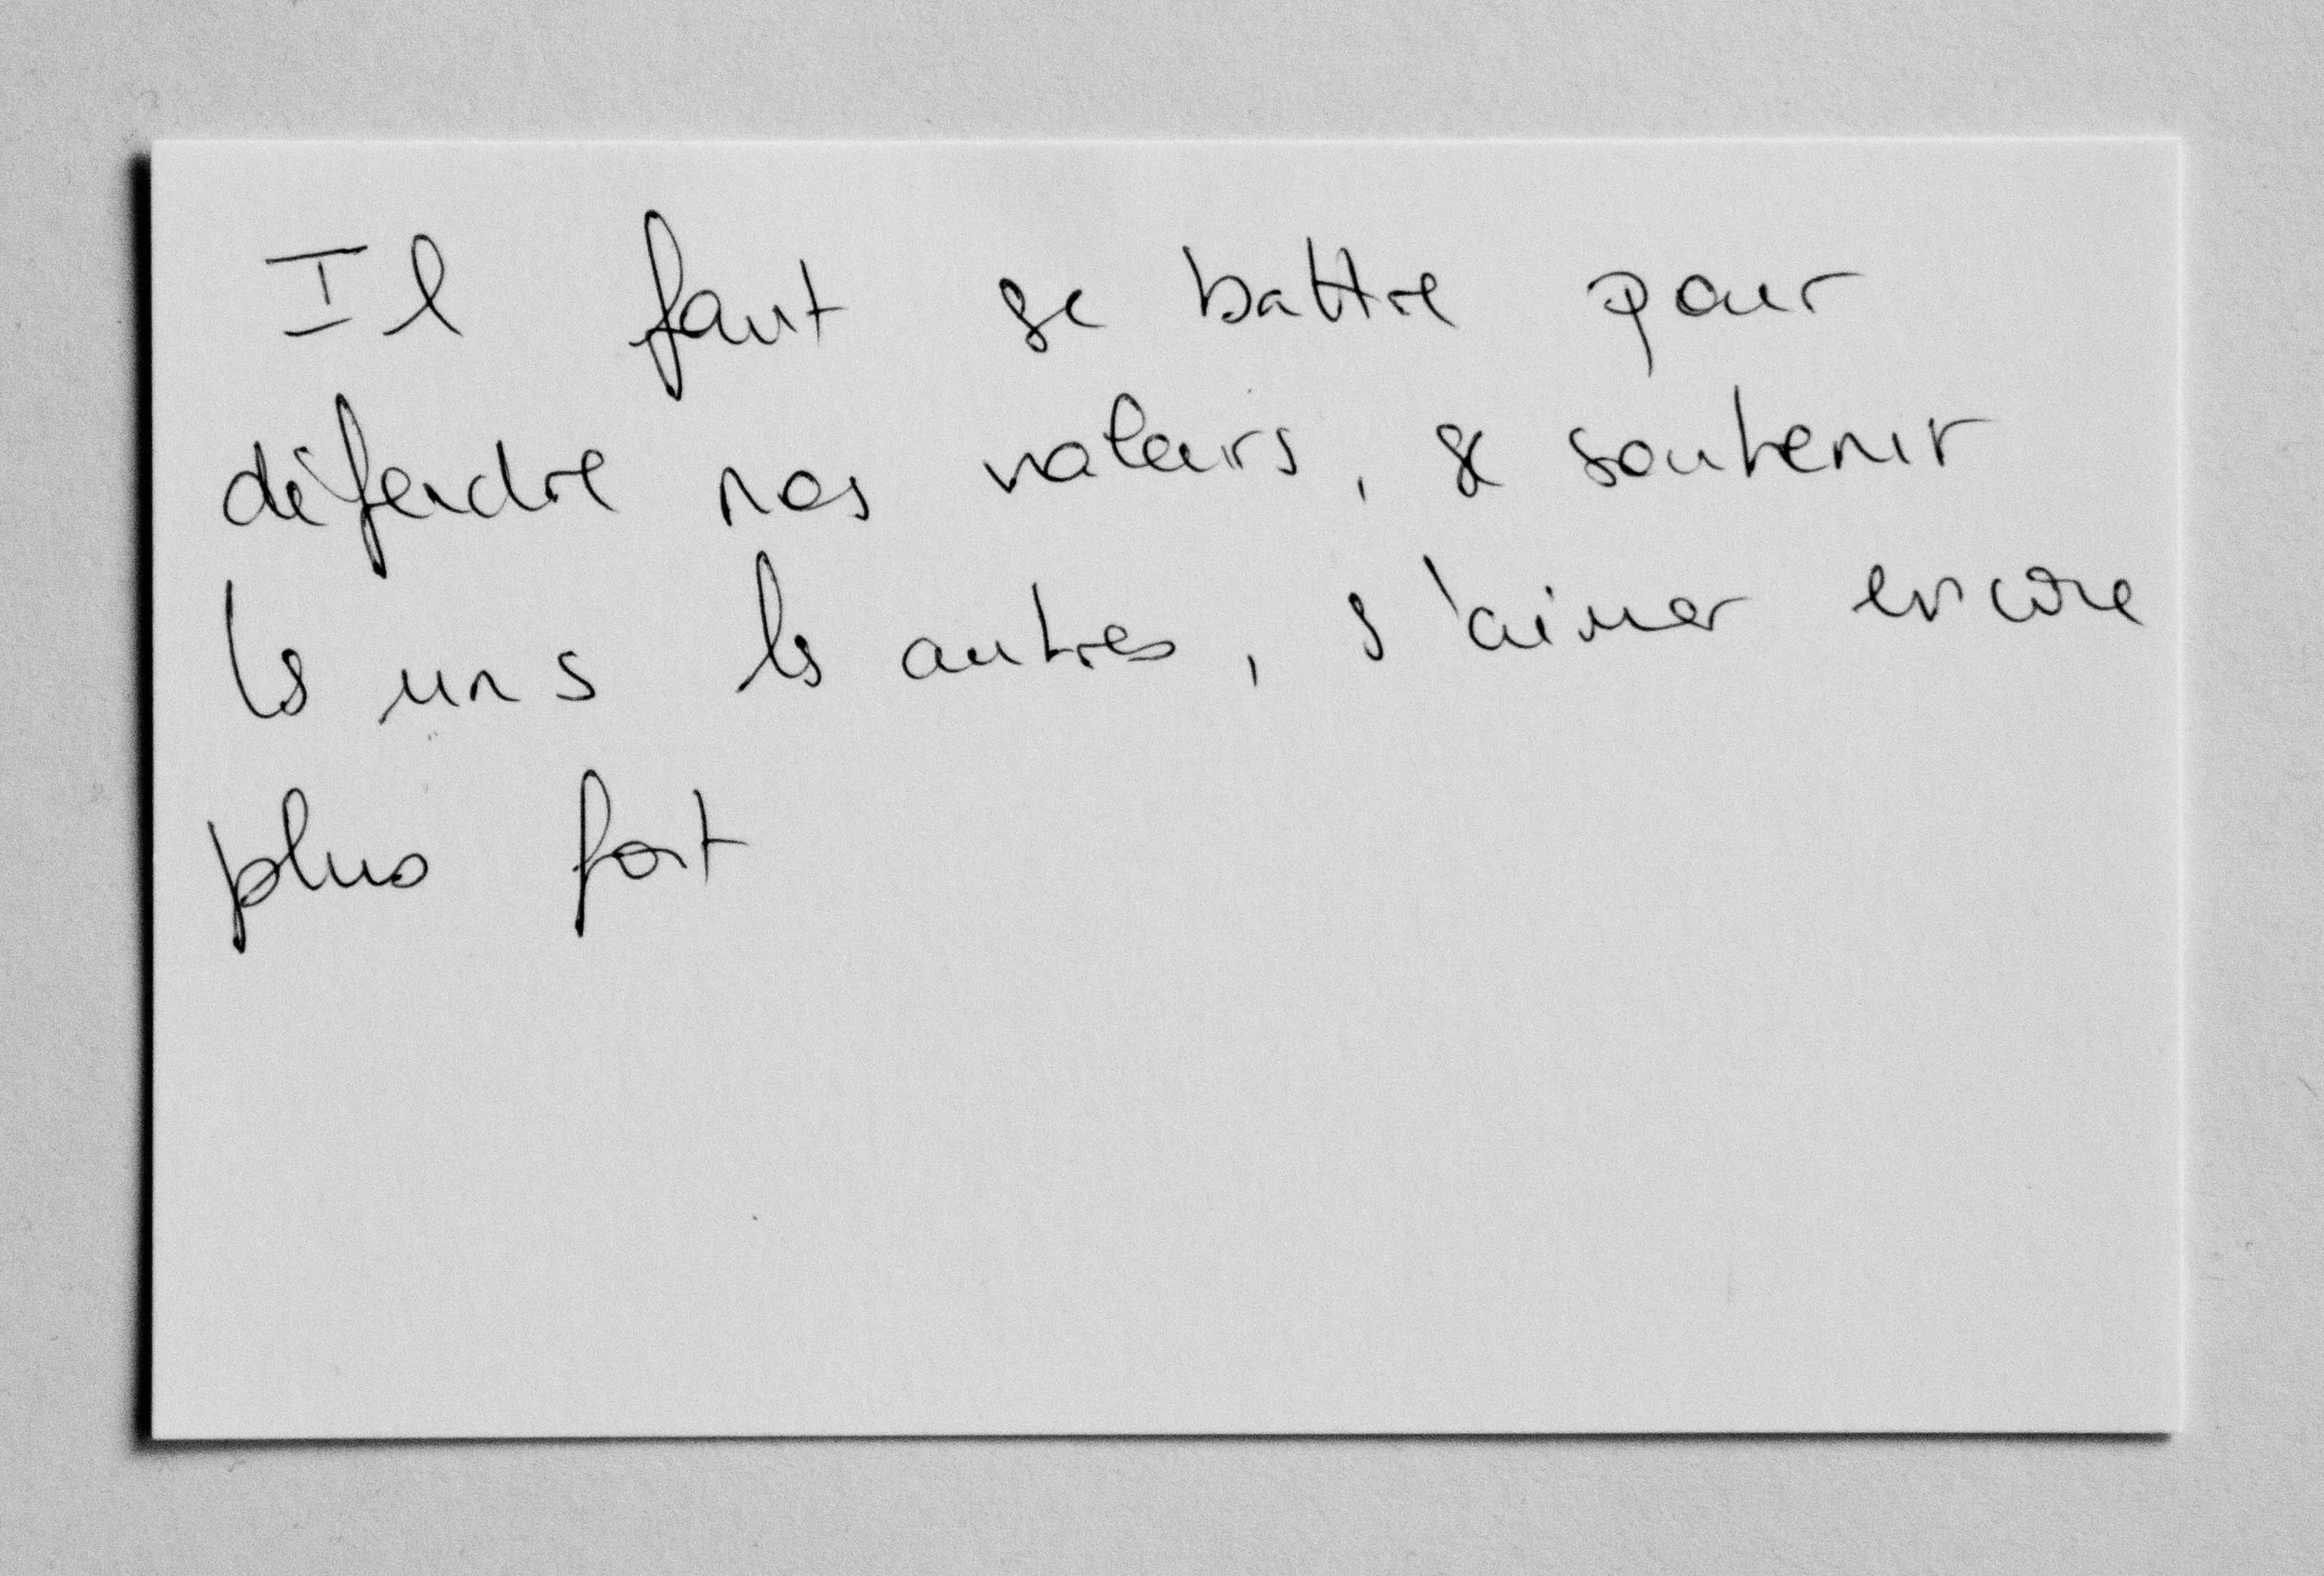 Il faut se battre pour
défendre nos valeurs, se soutenir
les uns les autres, s'aimer encore
plus fort